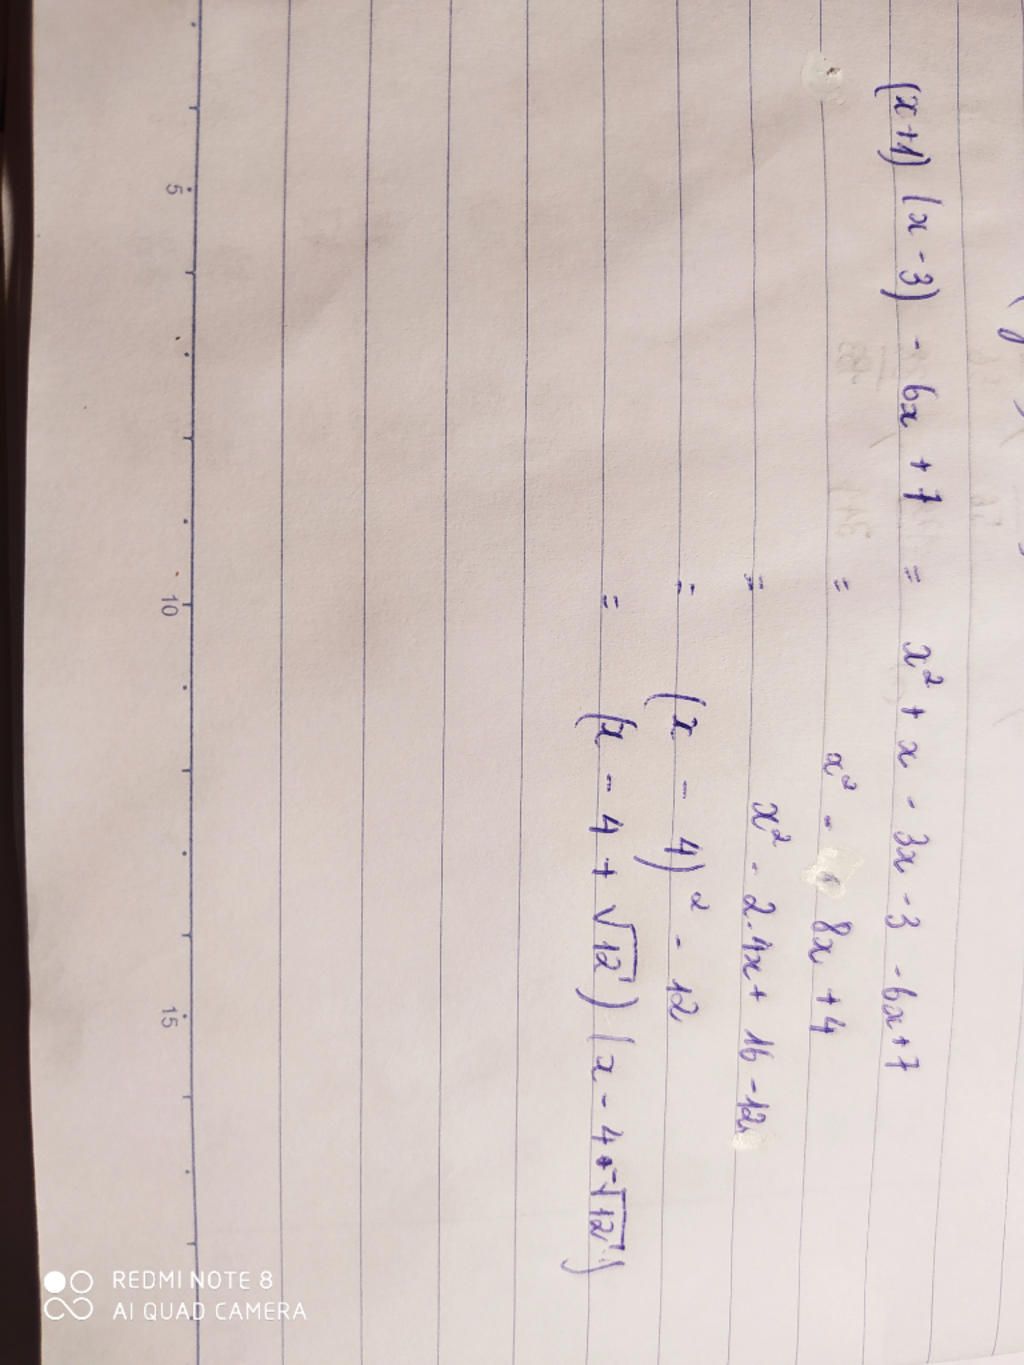 (x+1) (x-3) - 6x + 7 = x² + x - 3x - 3 - 6x + 7
= x² - 8x + 4
= x² - 2.4x + 16 - 12
= (x - 4)² - 12
= (x - 4 + √12) (x - 4 - √12)
5
10
15
REDMI NOTE 8
AI QUAD CAMERA